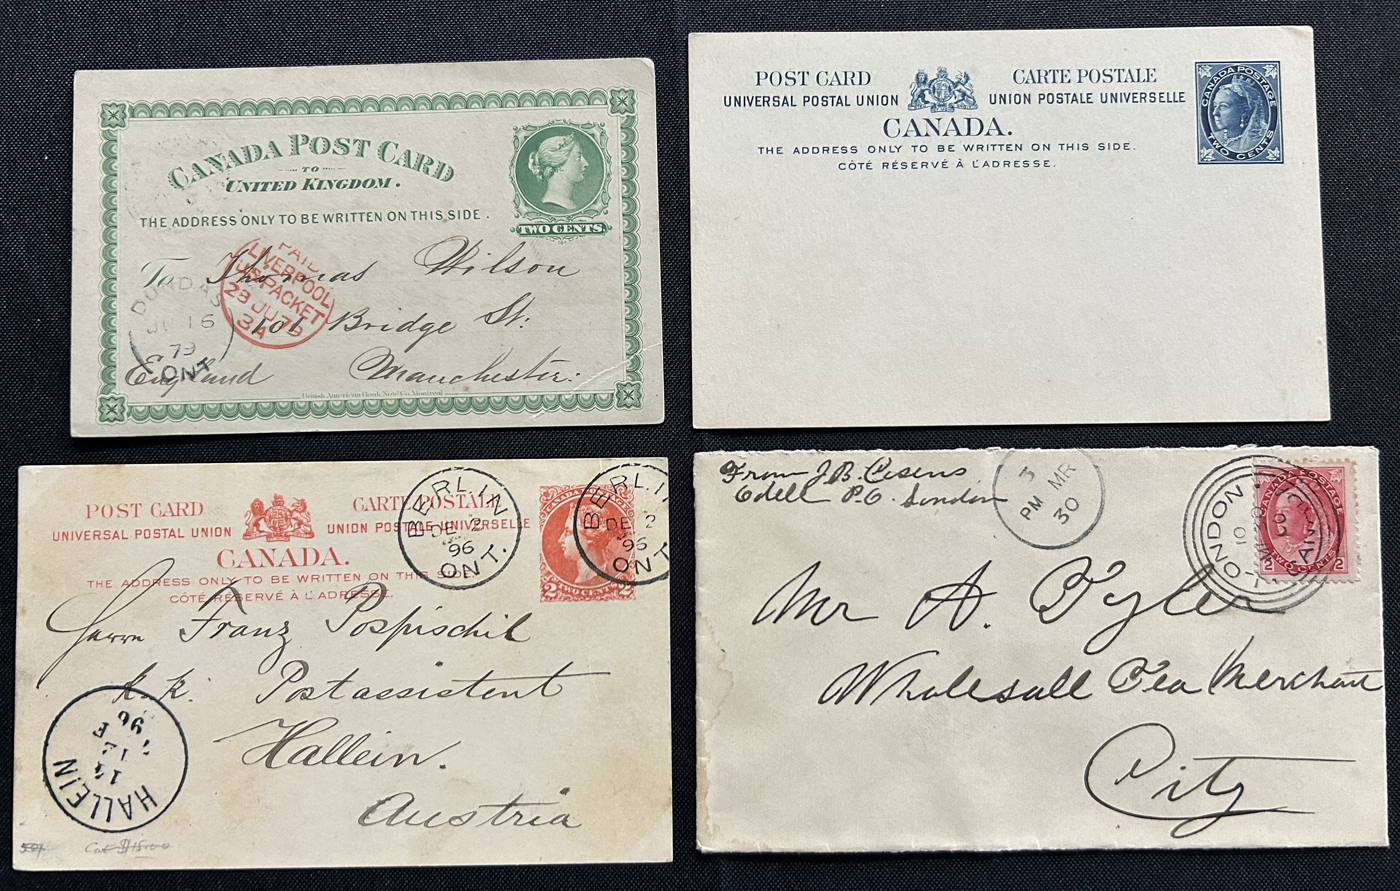 CANADA POST CARD
TO
UNITED KINGDOM.
THE ADDRESS ONLY TO BE WRITTEN ON THIS SIDE.
TWO CENTS.
To Thomas Wilson
101 Bridge St:
England Manchester:
PAID
LIVERPOOL
US PACKET
28 JU 79
3A
DUNDAS
JU 16
79
ONT
British American Bank Note Co. Montreal
POST CARD CARTE POSTALE
UNIVERSAL POSTAL UNION UNION POSTALE UNIVERSELLE
CANADA.
THE ADDRESS ONLY TO BE WRITTEN ON THIS SIDE.
CÔTÉ RÉSERVÉ À L'ADRESSE.
CANADA POSTAGE
TWO CENTS
POST CARD CARTE POSTALE
UNIVERSAL POSTAL UNION UNION POSTALE UNIVERSELLE
CANADA.
THE ADDRESS ONLY TO BE WRITTEN ON THIS SIDE.
CÔTÉ RÉSERVÉ À L'ADRESSE.
BERLIN
DE 2
96
ONT.
BERLIN
DE 2
96
ONT.
2 TWO CENTS 2
Herrn Franz Pospischil
k. k. Postassistent
Hallein.
Austria
HALLEIN
14
12
96
From J.B.
Odell P.O. London
3
PM MR
30
LONDON
CANADA
CANADA POSTAGE
2 TWO CENTS 2
Mr A. Tyler
Wholesall Tea Merchant
City